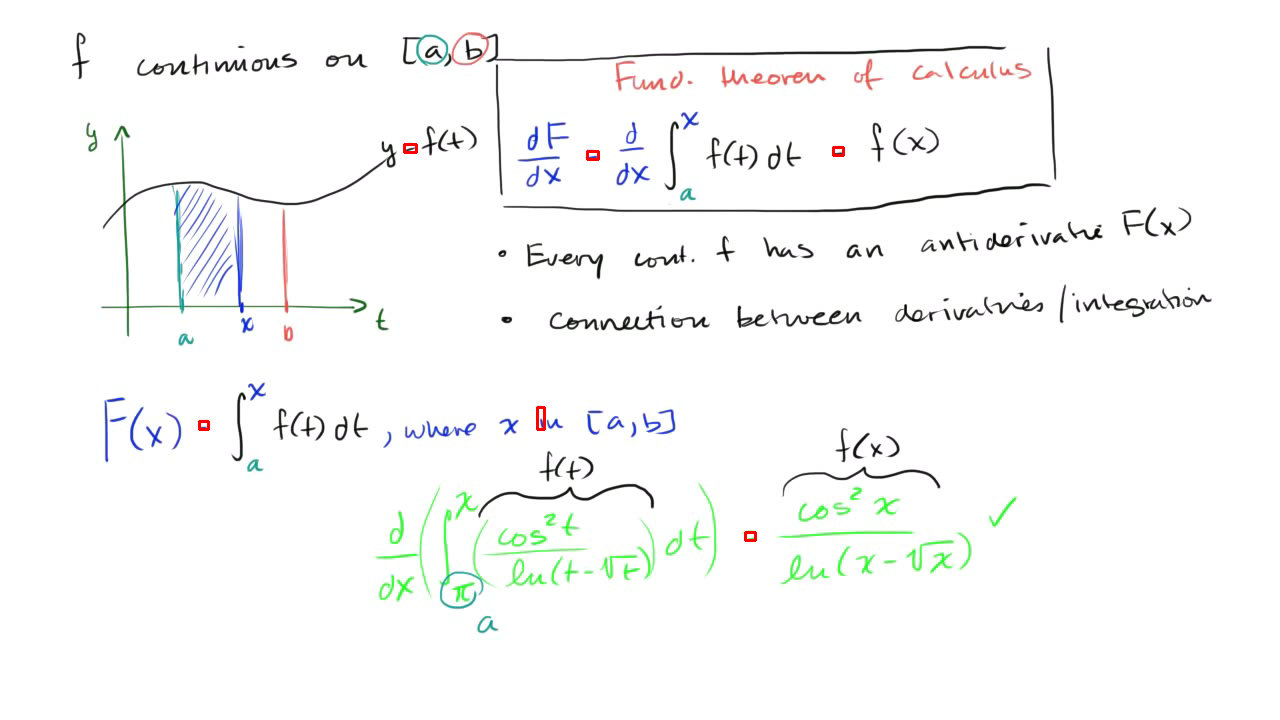 f continuous on [a, b]
Fund. theorem of calculus
dF/dx = d/dx ∫_a^x f(t) dt = f(x)
y
y = f(t)
a x b t
• Every cont. f has an antiderivative F(x)
• connection between derivatives / integration
F(x) = ∫_a^x f(t) dt, where x in [a, b]
f(t) f(x)
d/dx (∫_π^x (cos²t / ln(t-√t)) dt) = cos² x / ln(x-√x) ✓
a